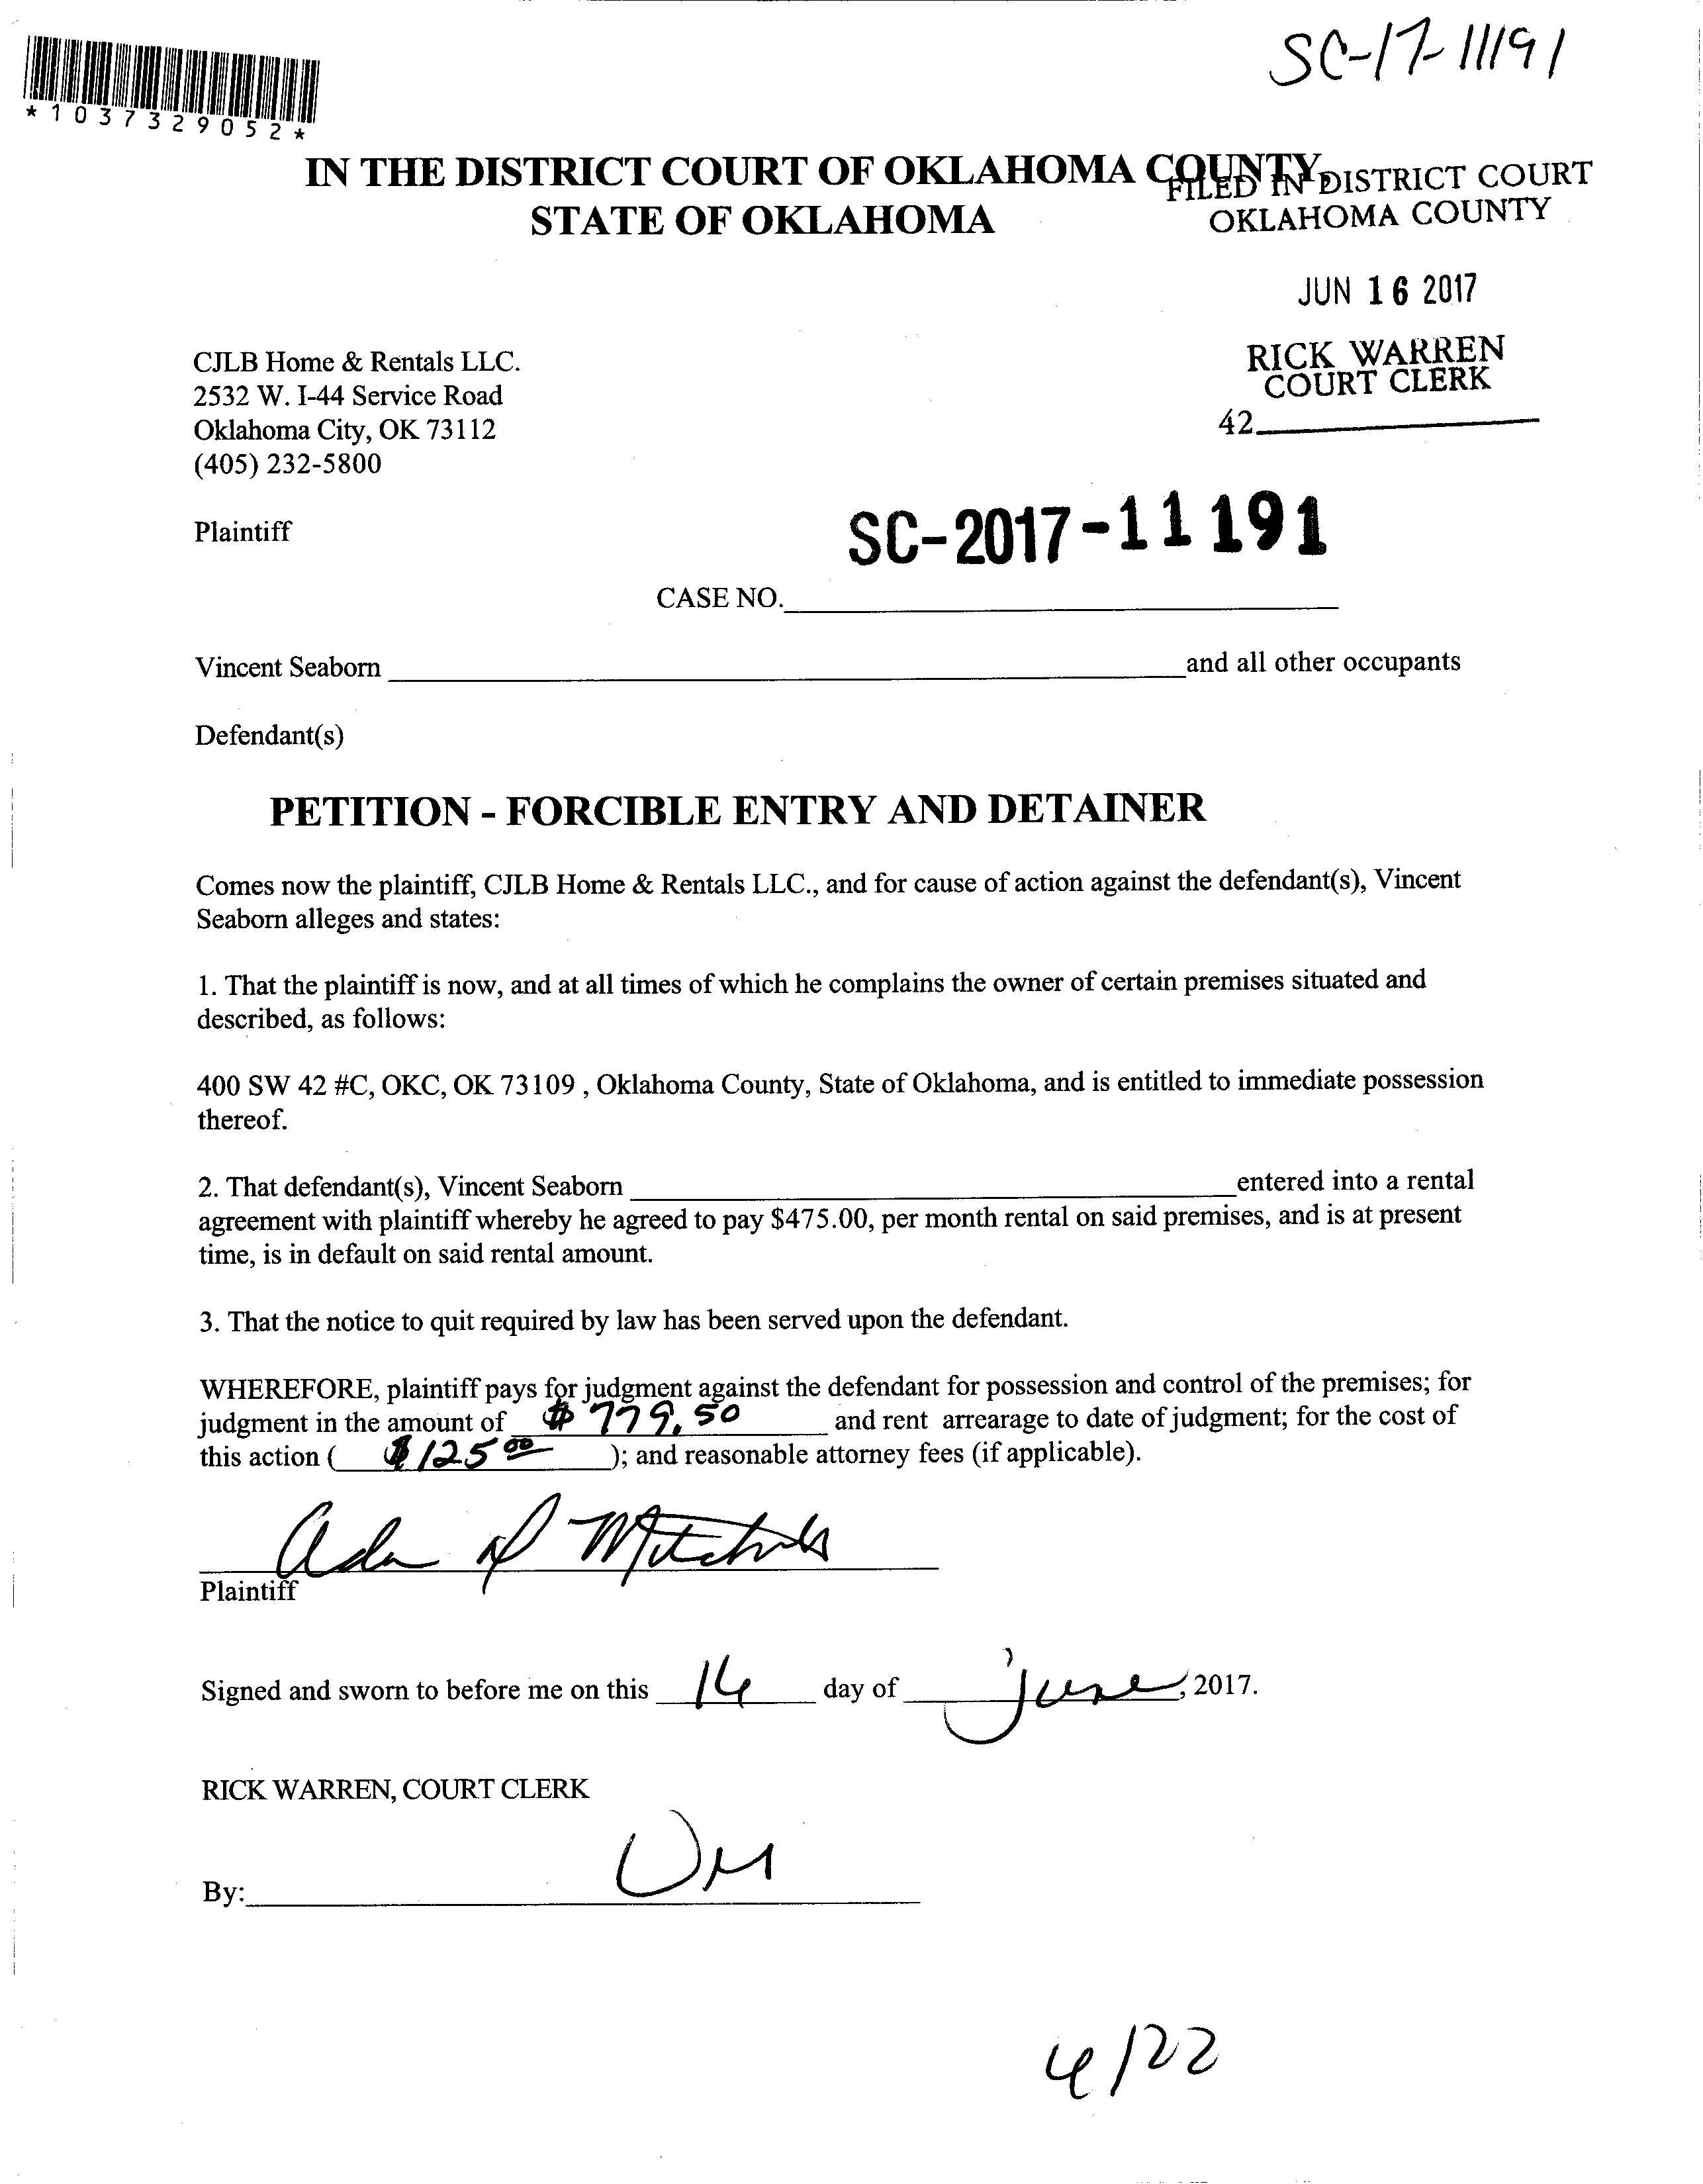 SC-17-11191
*1037329052*
IN THE DISTRICT COURT OF OKLAHOMA COUNTY
STATE OF OKLAHOMA
FILED IN DISTRICT COURT
OKLAHOMA COUNTY
JUN 16 2017
RICK WARREN
COURT CLERK
42
CJLB Home & Rentals LLC.
2532 W. I-44 Service Road
Oklahoma City, OK 73112
(405) 232-5800
Plaintiff
SC-2017-11191
CASE NO.
Vincent Seaborn and all other occupants
Defendant(s)
PETITION - FORCIBLE ENTRY AND DETAINER
Comes now the plaintiff, CJLB Home & Rentals LLC., and for cause of action against the defendant(s), Vincent
Seaborn alleges and states:
1. That the plaintiff is now, and at all times of which he complains the owner of certain premises situated and
described, as follows:
400 SW 42 #C, OKC, OK 73109 , Oklahoma County, State of Oklahoma, and is entitled to immediate possession
thereof.
2. That defendant(s), Vincent Seaborn entered into a rental
agreement with plaintiff whereby he agreed to pay $475.00, per month rental on said premises, and is at present
time, is in default on said rental amount.
3. That the notice to quit required by law has been served upon the defendant.
WHEREFORE, plaintiff pays for judgment against the defendant for possession and control of the premises; for
judgment in the amount of $779.50 and rent arrearage to date of judgment; for the cost of
this action ( $125 00 ); and reasonable attorney fees (if applicable).
Plaintiff
Signed and sworn to before me on this 16 day of June, 2017.
RICK WARREN, COURT CLERK
By: